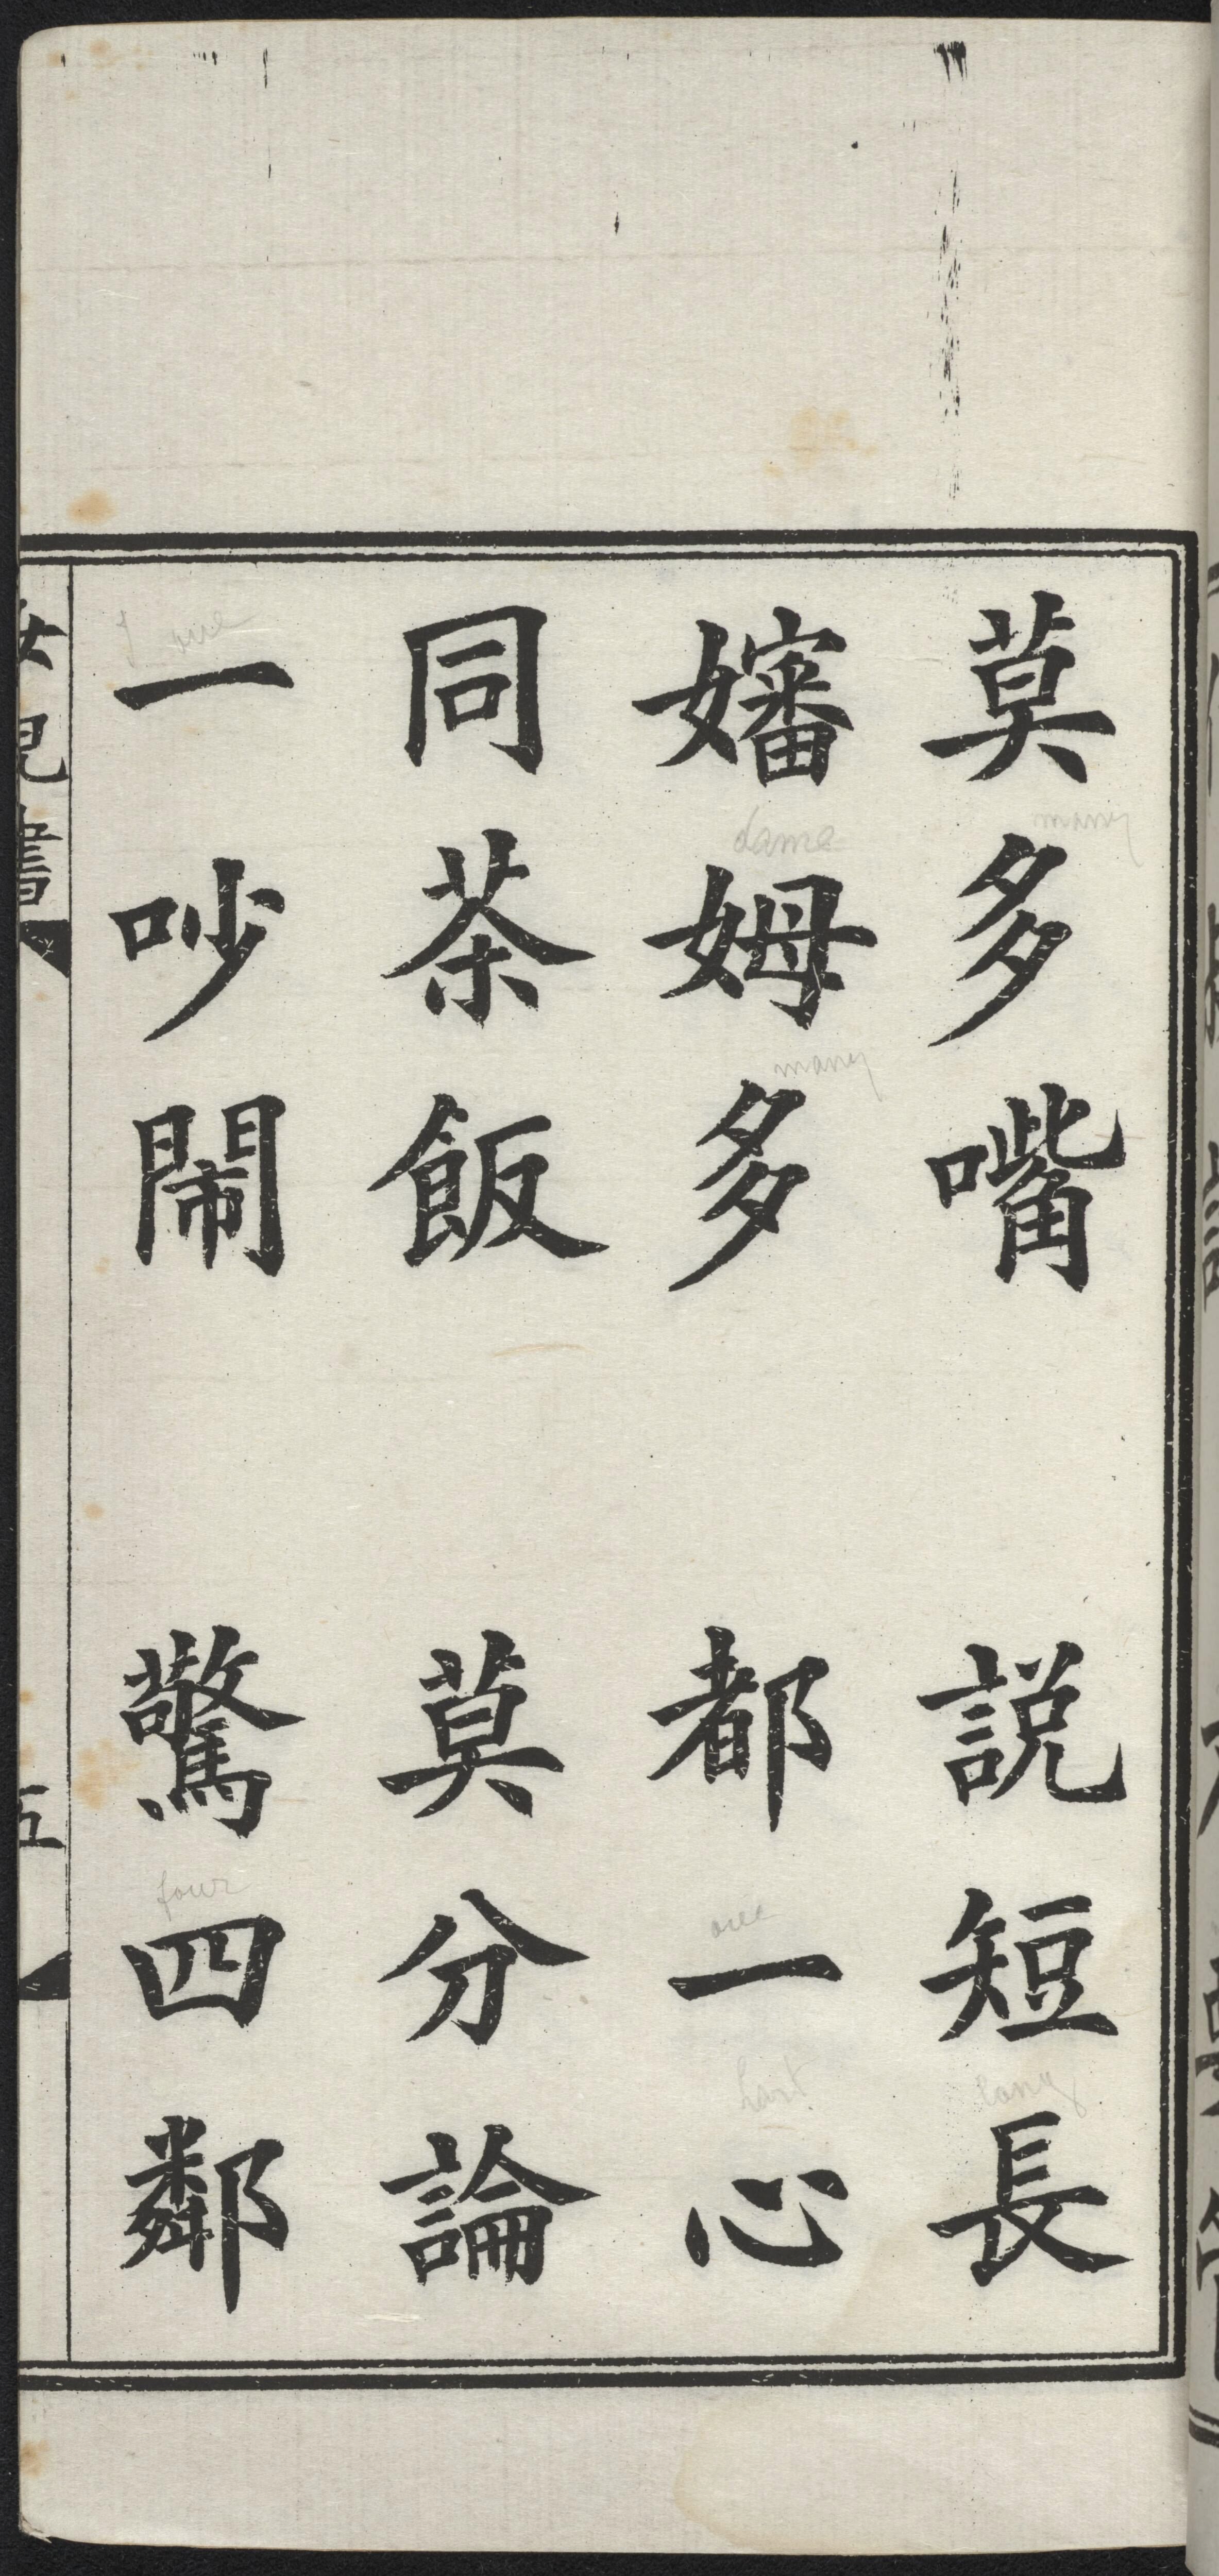 莫多嘴 說短長
嬸姆多 都一心
同茶飯 莫分論
一吵鬧 驚四鄰
女兒書 五
many
dame
many
one
long
four
one